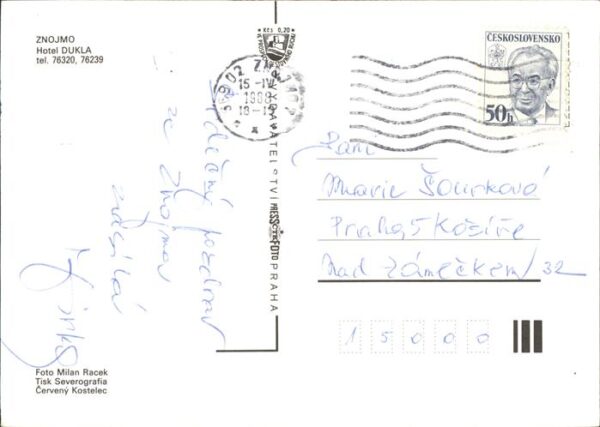 ZNOJMO
Hotel DUKLA
tel. 76320, 76239
Kčs 0,20
ČESKOSLOVENSKO
50h
669 02 ZNOJMO 2
15.-IV
1988
VYDAVATELSTVÍ PRESSFOTO PRAHA
Srdečný pozdrav
ze Znojma
zasílá
Jirka
Paní
Marie Šourková
Praha 5 Košíře
Nad Zámečkem 32
15000
Foto Milan Racek
Tisk Severografia
Červený Kostelec